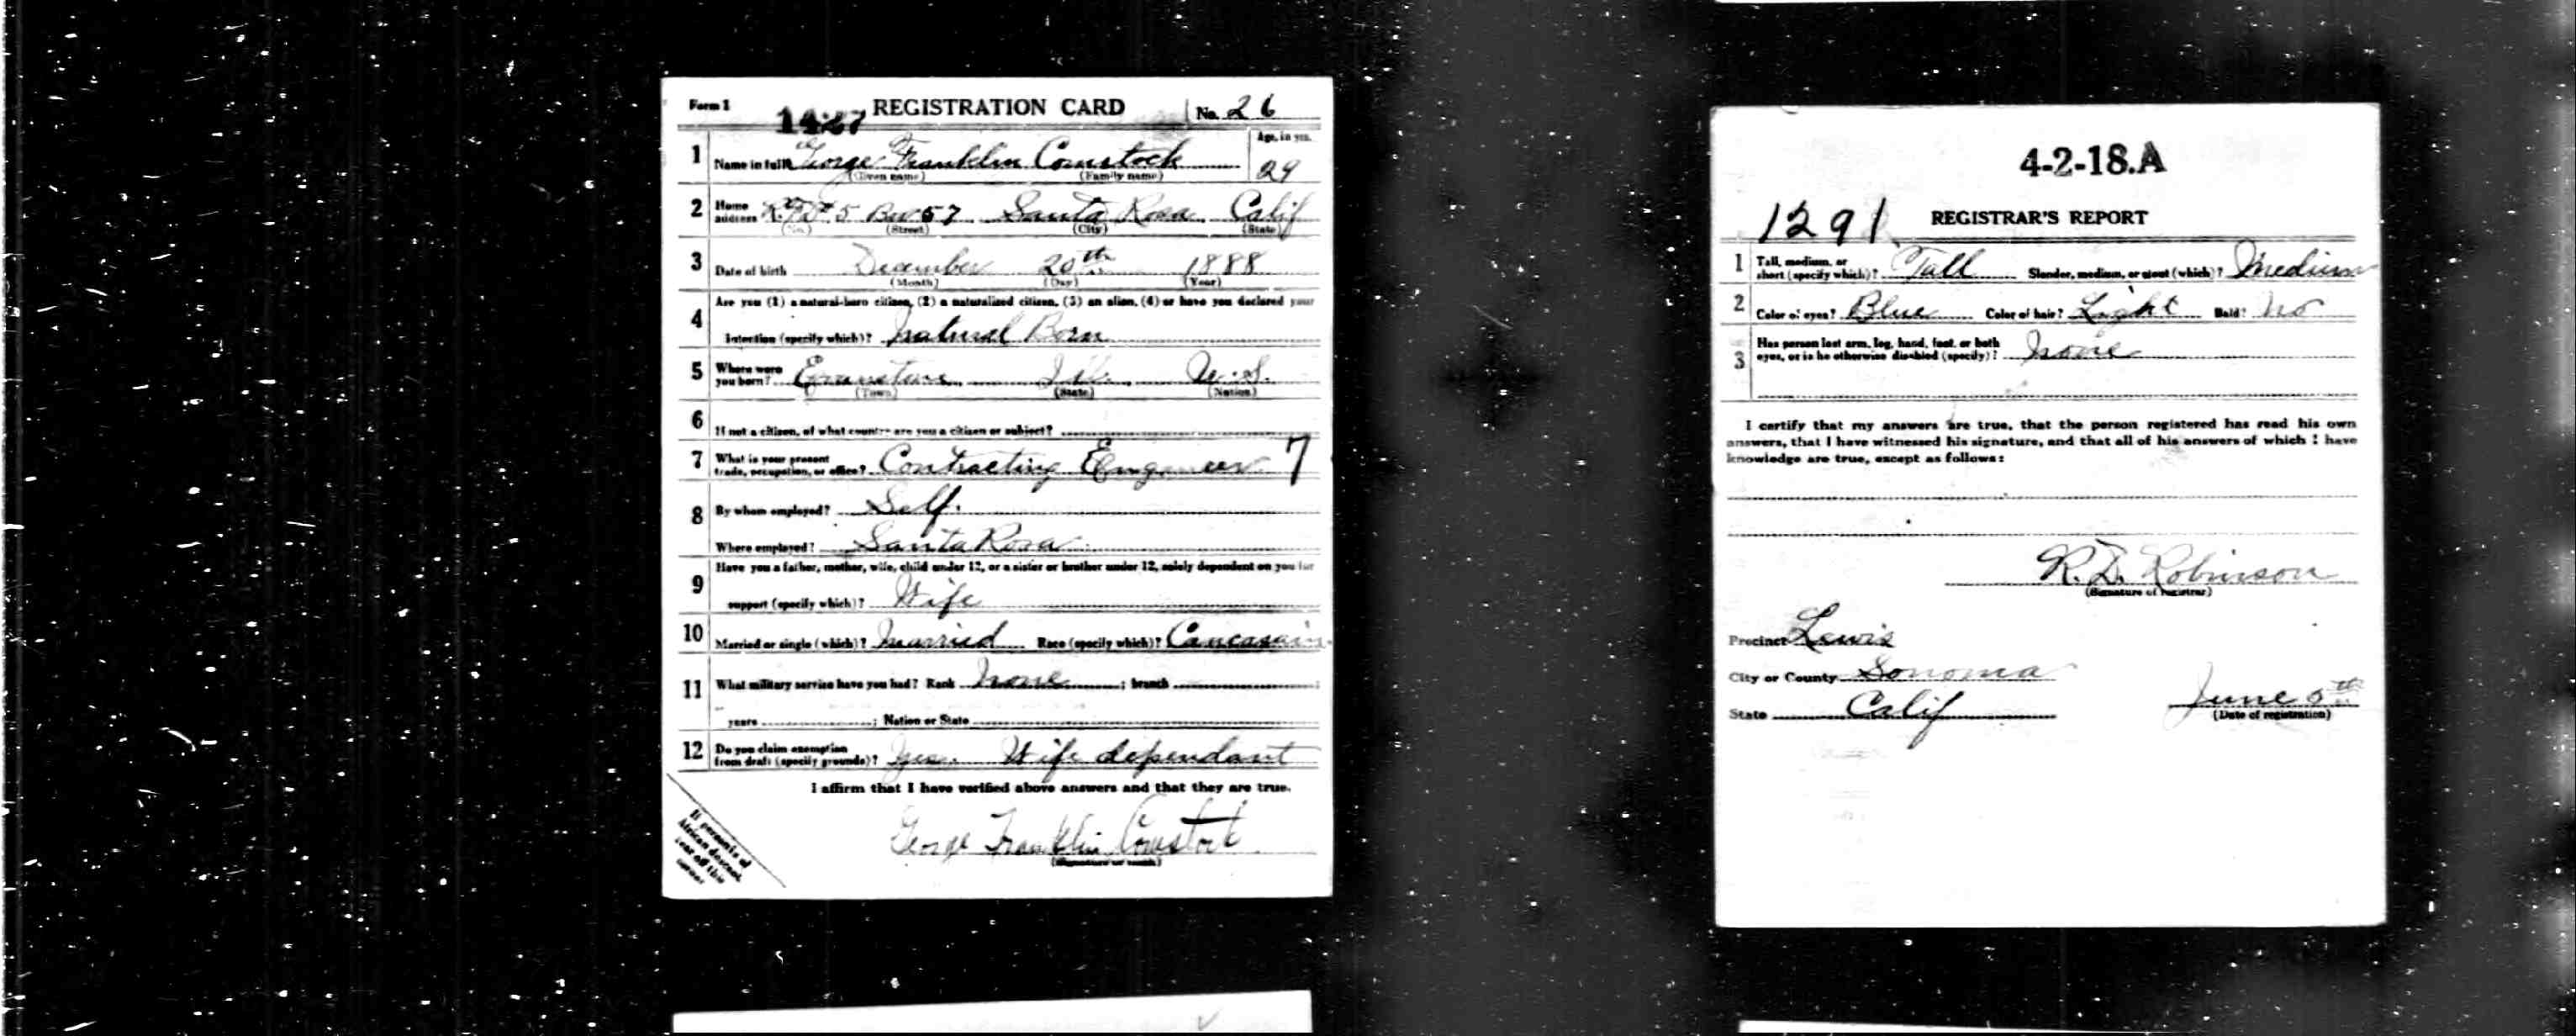 Form 1
REGISTRATION CARD
No. 26
1427
Age, in yrs.
1 Name in full George Franklin Comstock 29
(Given name) (Family name)
2 Home address R.F.D. #5 Box 57 Santa Rosa Calif
(No.) (Street) (City) (State)
3 Date of birth December 20th 1888
(Month) (Day) (Year)
4 Are you (1) a natural-born citizen, (2) a naturalized citizen, (3) an alien, (4) or have you declared your
intention (specify which)? Natural Born
5 Where were you born? Evanston Ill. U.S.
(Town) (State) (Nation)
6 If not a citizen, of what country are you a citizen or subject?
7 What is your present trade, occupation, or office? Contracting Engineer 7
8 By whom employed? Self.
Where employed? Santa Rosa
9 Have you a father, mother, wife, child under 12, or a sister or brother under 12, solely dependent on you for
support (specify which)? Wife
10 Married or single (which)? Married Race (specify which)? Cancasain
11 What military service have you had? Rank None ; branch ;
years ; Nation or State
12 Do you claim exemption from draft (specify grounds)? Yes. Wife dependant
I affirm that I have verified above answers and that they are true.
George Franklin Comstock
(Signature or mark)
If person is of
African descent,
tear off this
corner
4-2-18.A
1291 REGISTRAR'S REPORT
1 Tall, medium, or short (specify which)? Tall Slender, medium, or stout (which)? Medium
2 Color of eyes? Blue Color of hair? Light Bald? No
3 Has person lost arm, leg, hand, foot, or both
eyes, or is he otherwise disabled (specify)? None
I certify that my answers are true, that the person registered has read his own
answers, that I have witnessed his signature, and that all of his answers of which I have
knowledge are true, except as follows:
R. D. Robinson
(Signature of registrar)
Precinct Lewis
City or County Sonoma
State Calif June 5th
(Date of registration)